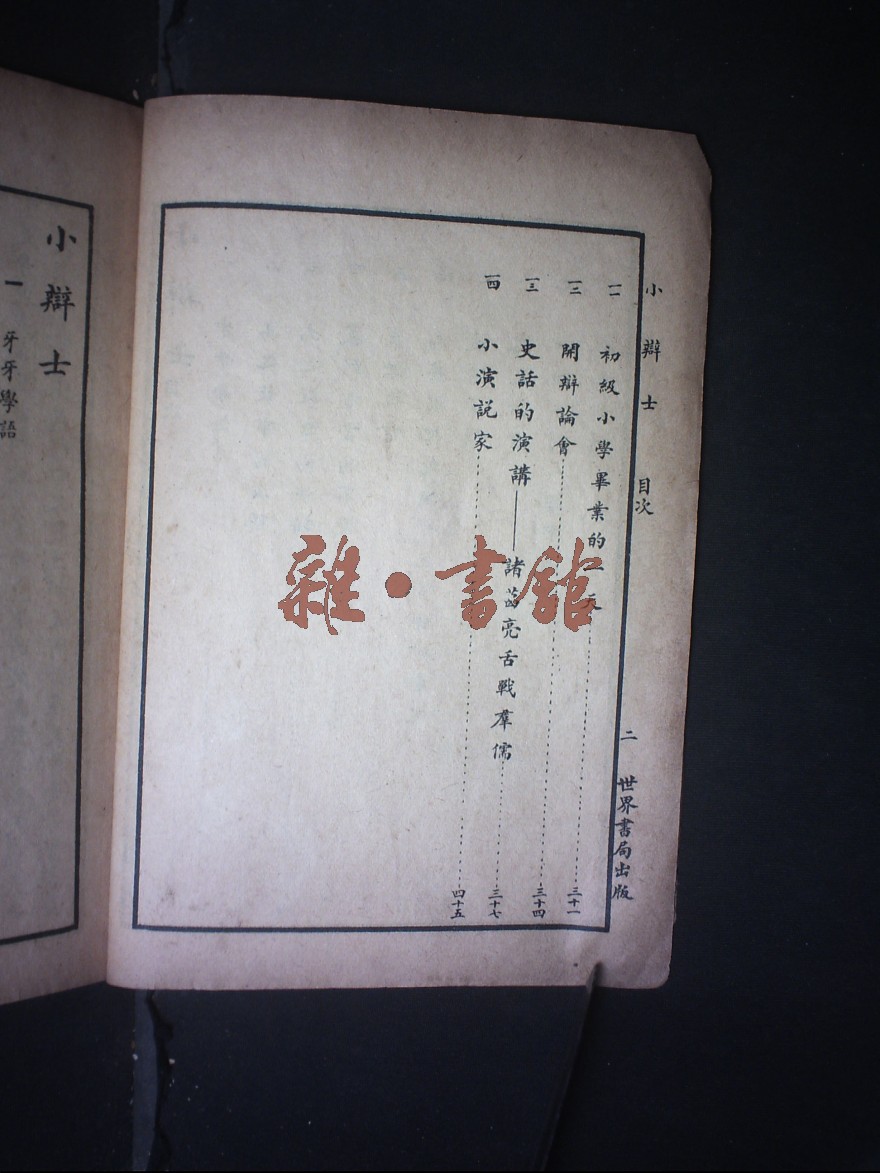 小辯士 目次 二 世界書局出版
一一 初級小學畢業的一天 三十一
一二 開辯論會 三十四
一三 史話的演講——諸葛亮舌戰羣儒 三十七
一四 小演説家 四十五
小辯士
一 牙牙學語
雜·書館